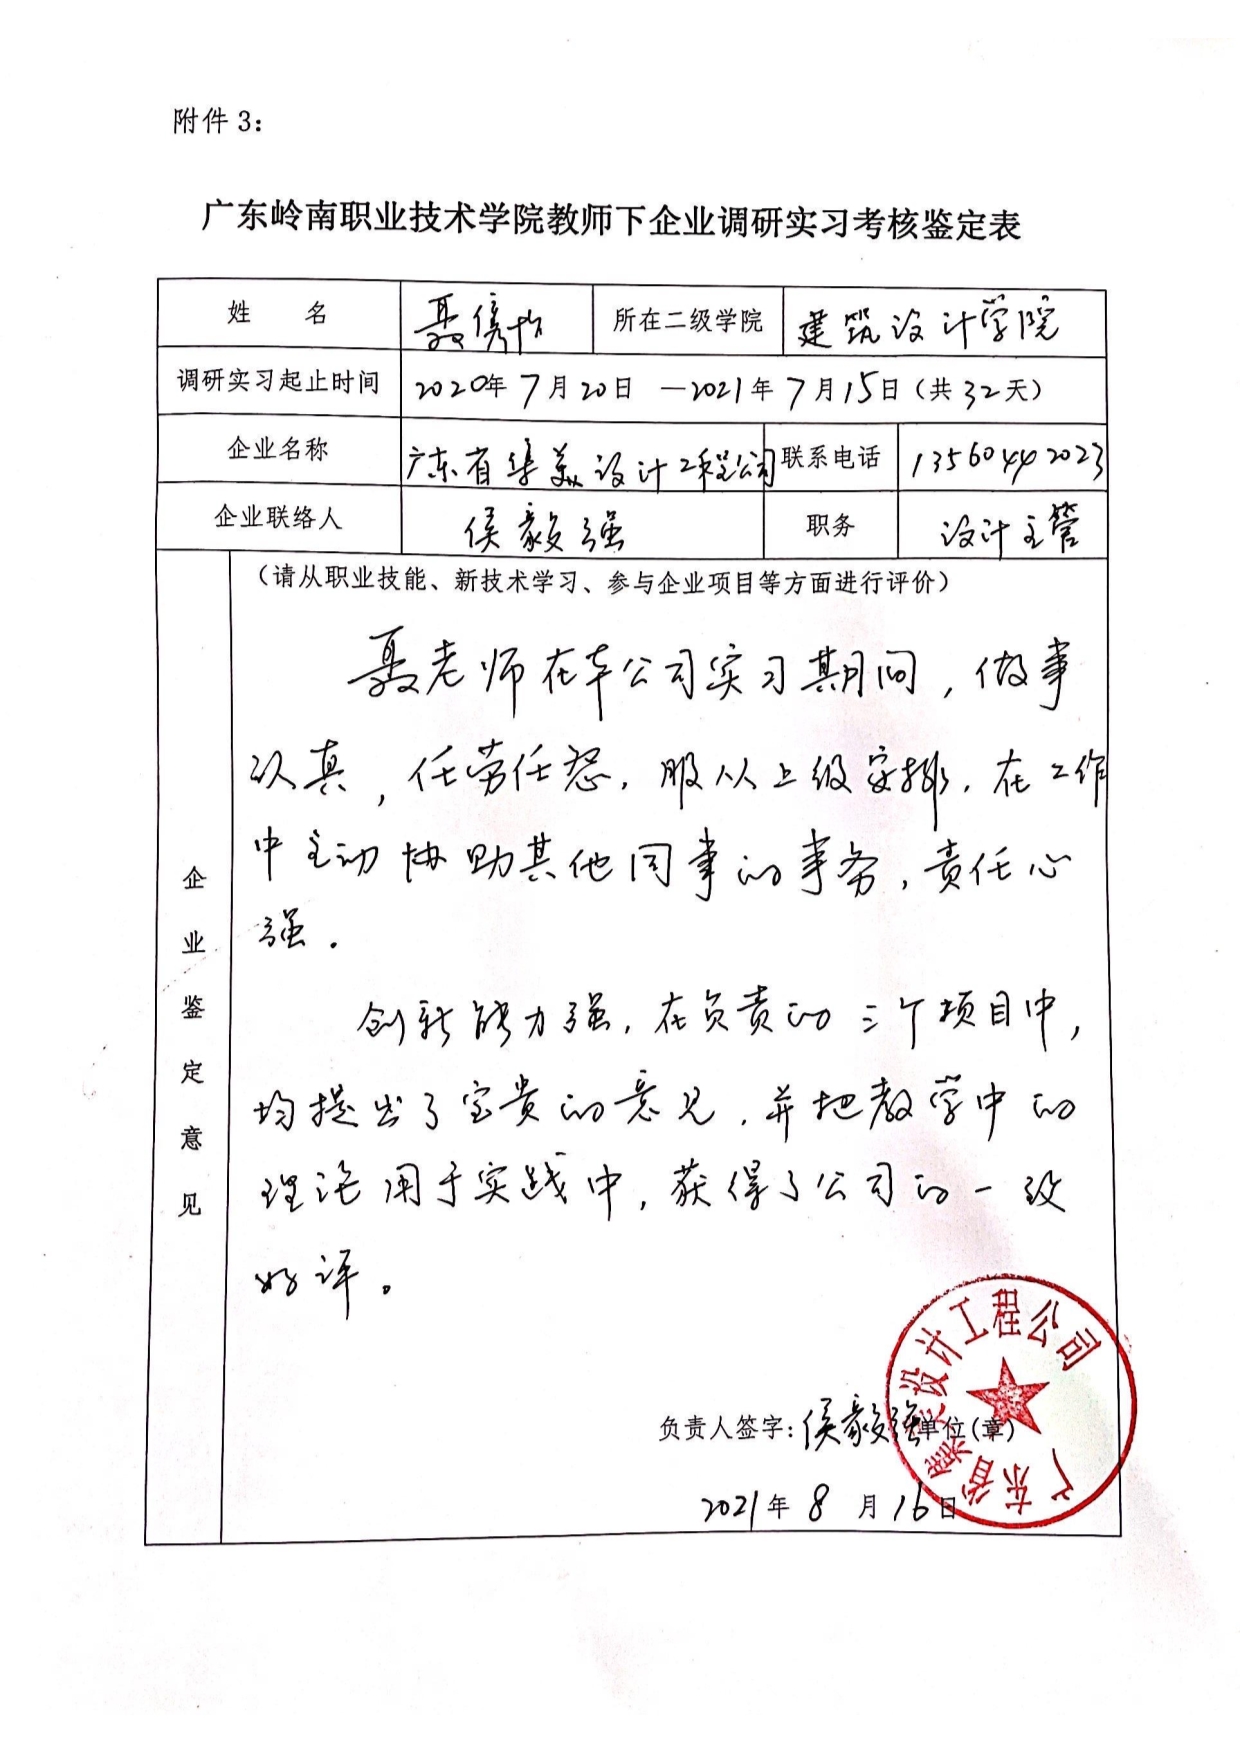 附件 3：
广东岭南职业技术学院教师下企业调研实习考核鉴定表
姓 名 聂隽怡 所在二级学院 建筑设计学院
调研实习起止时间 2020年7月20日 —2021年7月15日（共32天）
企业名称 广东省集美设计工程公司 联系电话 13560442023
企业联络人 侯毅强 职务 设计主管
企业鉴定意见
（请从职业技能、新技术学习、参与企业项目等方面进行评价）
聂老师在本公司实习期间，做事
认真，任劳任怨，服从上级安排，在工作
中主动协助其他同事的事务，责任心
强.
创新能力强，在负责的三个项目中，
均提出了宝贵的意见，并把教学中的
理论用于实践中，获得了公司的一致
好评。
负责人签字：侯毅强 单位(章)
2021年8月16日
广东省集美设计工程公司